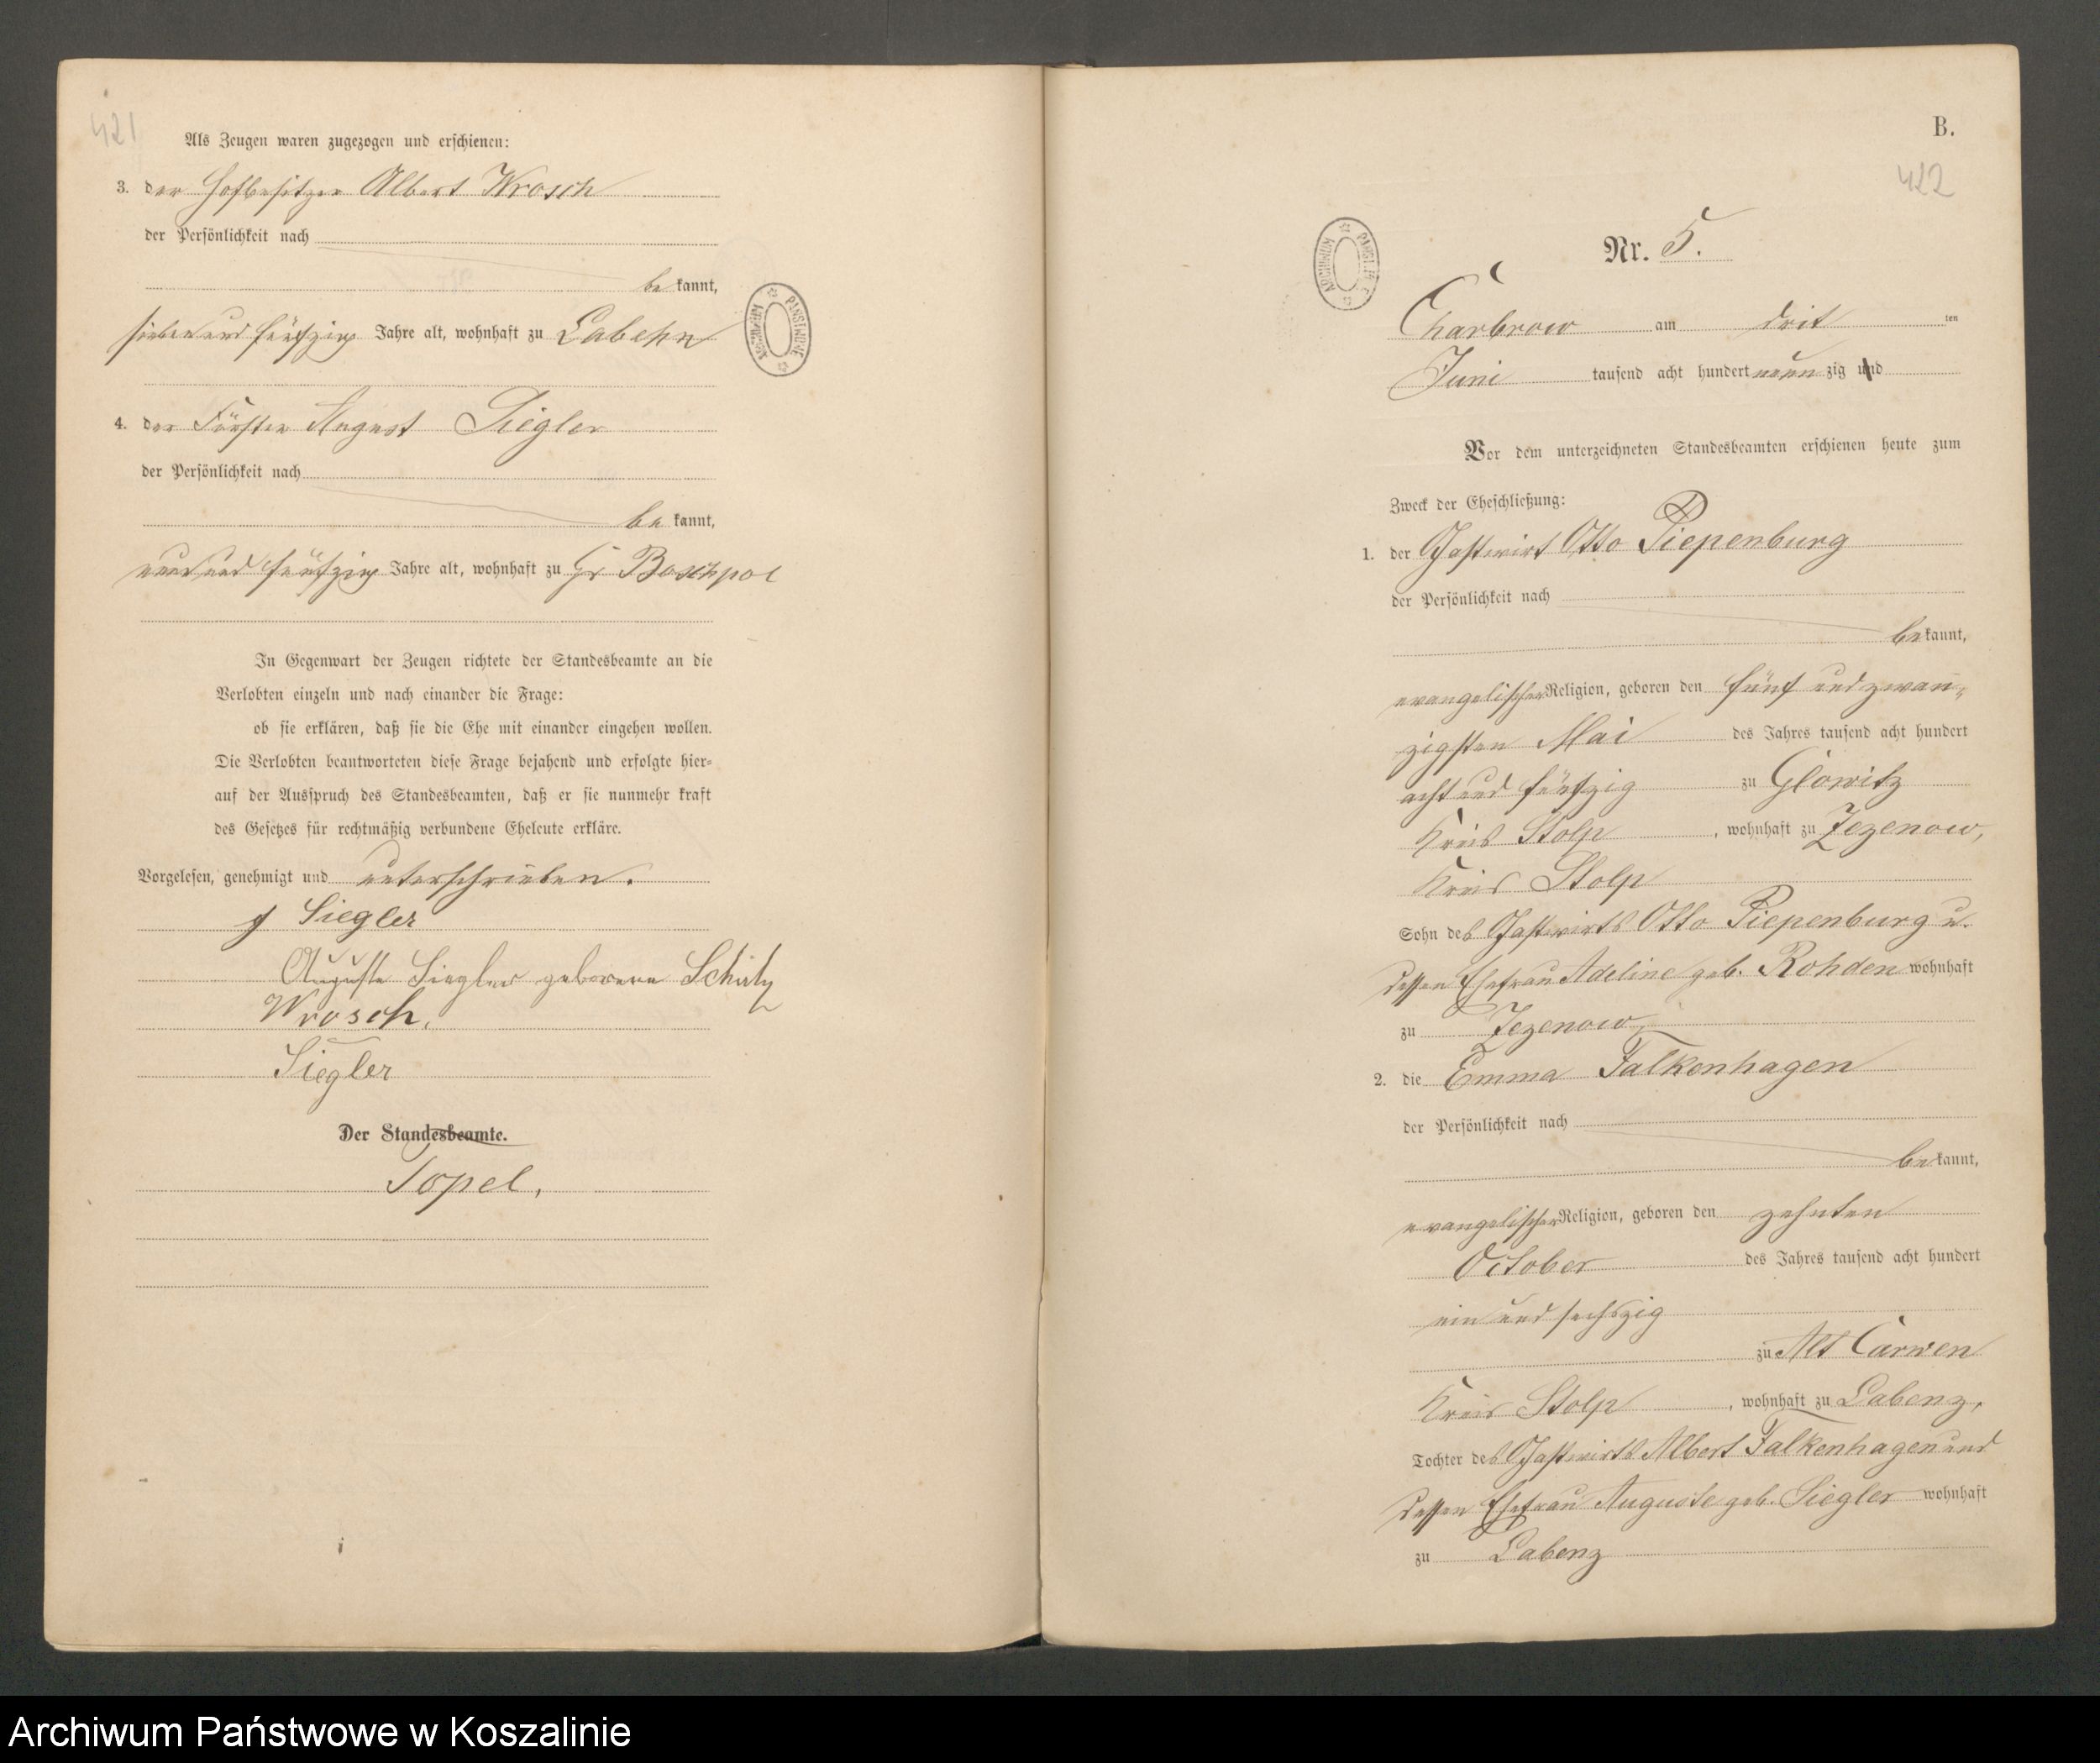 421
Als Zeugen waren zugezogen und erschienen:
3. der Hofbesitzer Albert Wrosch
der Persönlichkeit nach
be kannt,
sieben und fünfzig Jahre alt, wohnhaft zu Labehn
4. der Förster August Siegler
der Persönlichkeit nach
be kannt,
neun und fünfzig Jahre alt, wohnhaft zu Gr Boschpol
In Gegenwart der Zeugen richtete der Standesbeamte an die
Verlobten einzeln und nach einander die Frage:
ob sie erklären, daß sie die Ehe mit einander eingehen wollen.
Die Verlobten beantworteten diese Frage bejahend und erfolgte hier-
auf der Ausspruch des Standesbeamten, daß er sie nunmehr kraft
des Gesetzes für rechtmäßig verbundene Eheleute erkläre.
Vorgelesen, genehmigt und unterschrieben.
Siegler
Auguste Siegler geborene Schütz
Wrosch.
Siegler
Der Standesbeamte.
Topel.
ARCHIWUM PAŃSTWOWE
B.
422
Nr. 5.
Charbrow am drit ten
Juni tausend acht hundert neun zig und
Vor dem unterzeichneten Standesbeamten erschienen heute zum
Zweck der Eheschließung:
1. der Gastwirt Otto Piepenburg
der Persönlichkeit nach
be kannt,
evangelischer Religion, geboren den fünf und zwan-
zigsten Mai des Jahres tausend acht hundert
acht und fünfzig zu Glowitz
Kreis Stolp, wohnhaft zu Zezenow,
Kreis Stolp
Sohn des Gastwirts Otto Piepenburg u.
dessen Ehefrau Adeline geb. Rohden wohnhaft
zu Zezenow
2. die Emma Falkenhagen
der Persönlichkeit nach
be kannt,
evangelischer Religion, geboren den zehnten
October des Jahres tausend acht hundert
ein und sechszig
zu Alt Carwen
Kreis Stolp, wohnhaft zu Labenz,
Tochter des Gastwirts Albert Falkenhagen und
dessen Ehefrau Auguste geb. Siegler wohnhaft
zu Labenz
Archiwum Państwowe w Koszalinie